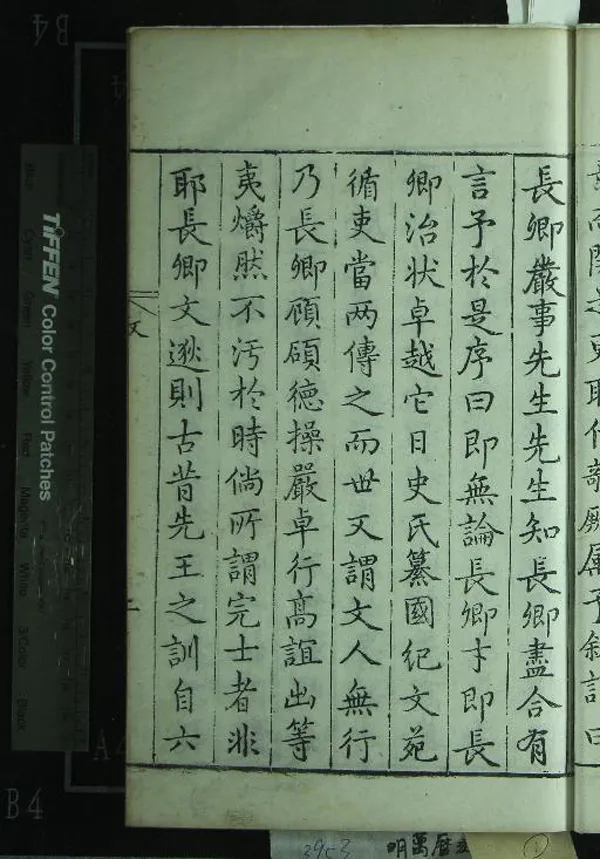 長卿嚴事先生先生知長卿盡合有
言予於是序曰即無論長卿才即長
卿治狀卓越它日史氏纂國紀文苑
循吏當两傳之而世又謂文人無行
乃長卿頋碩德操嚴卓行髙誼出等
夷皭然不汚於時倘所謂完士者非
耶長卿文遡則古昔先王之訓自六
TIFFEN Color Control Patches
Blue Cyan Green Yellow Red Magenta White 3/Color Black
B4
B4
A4
3953
明萬曆
1